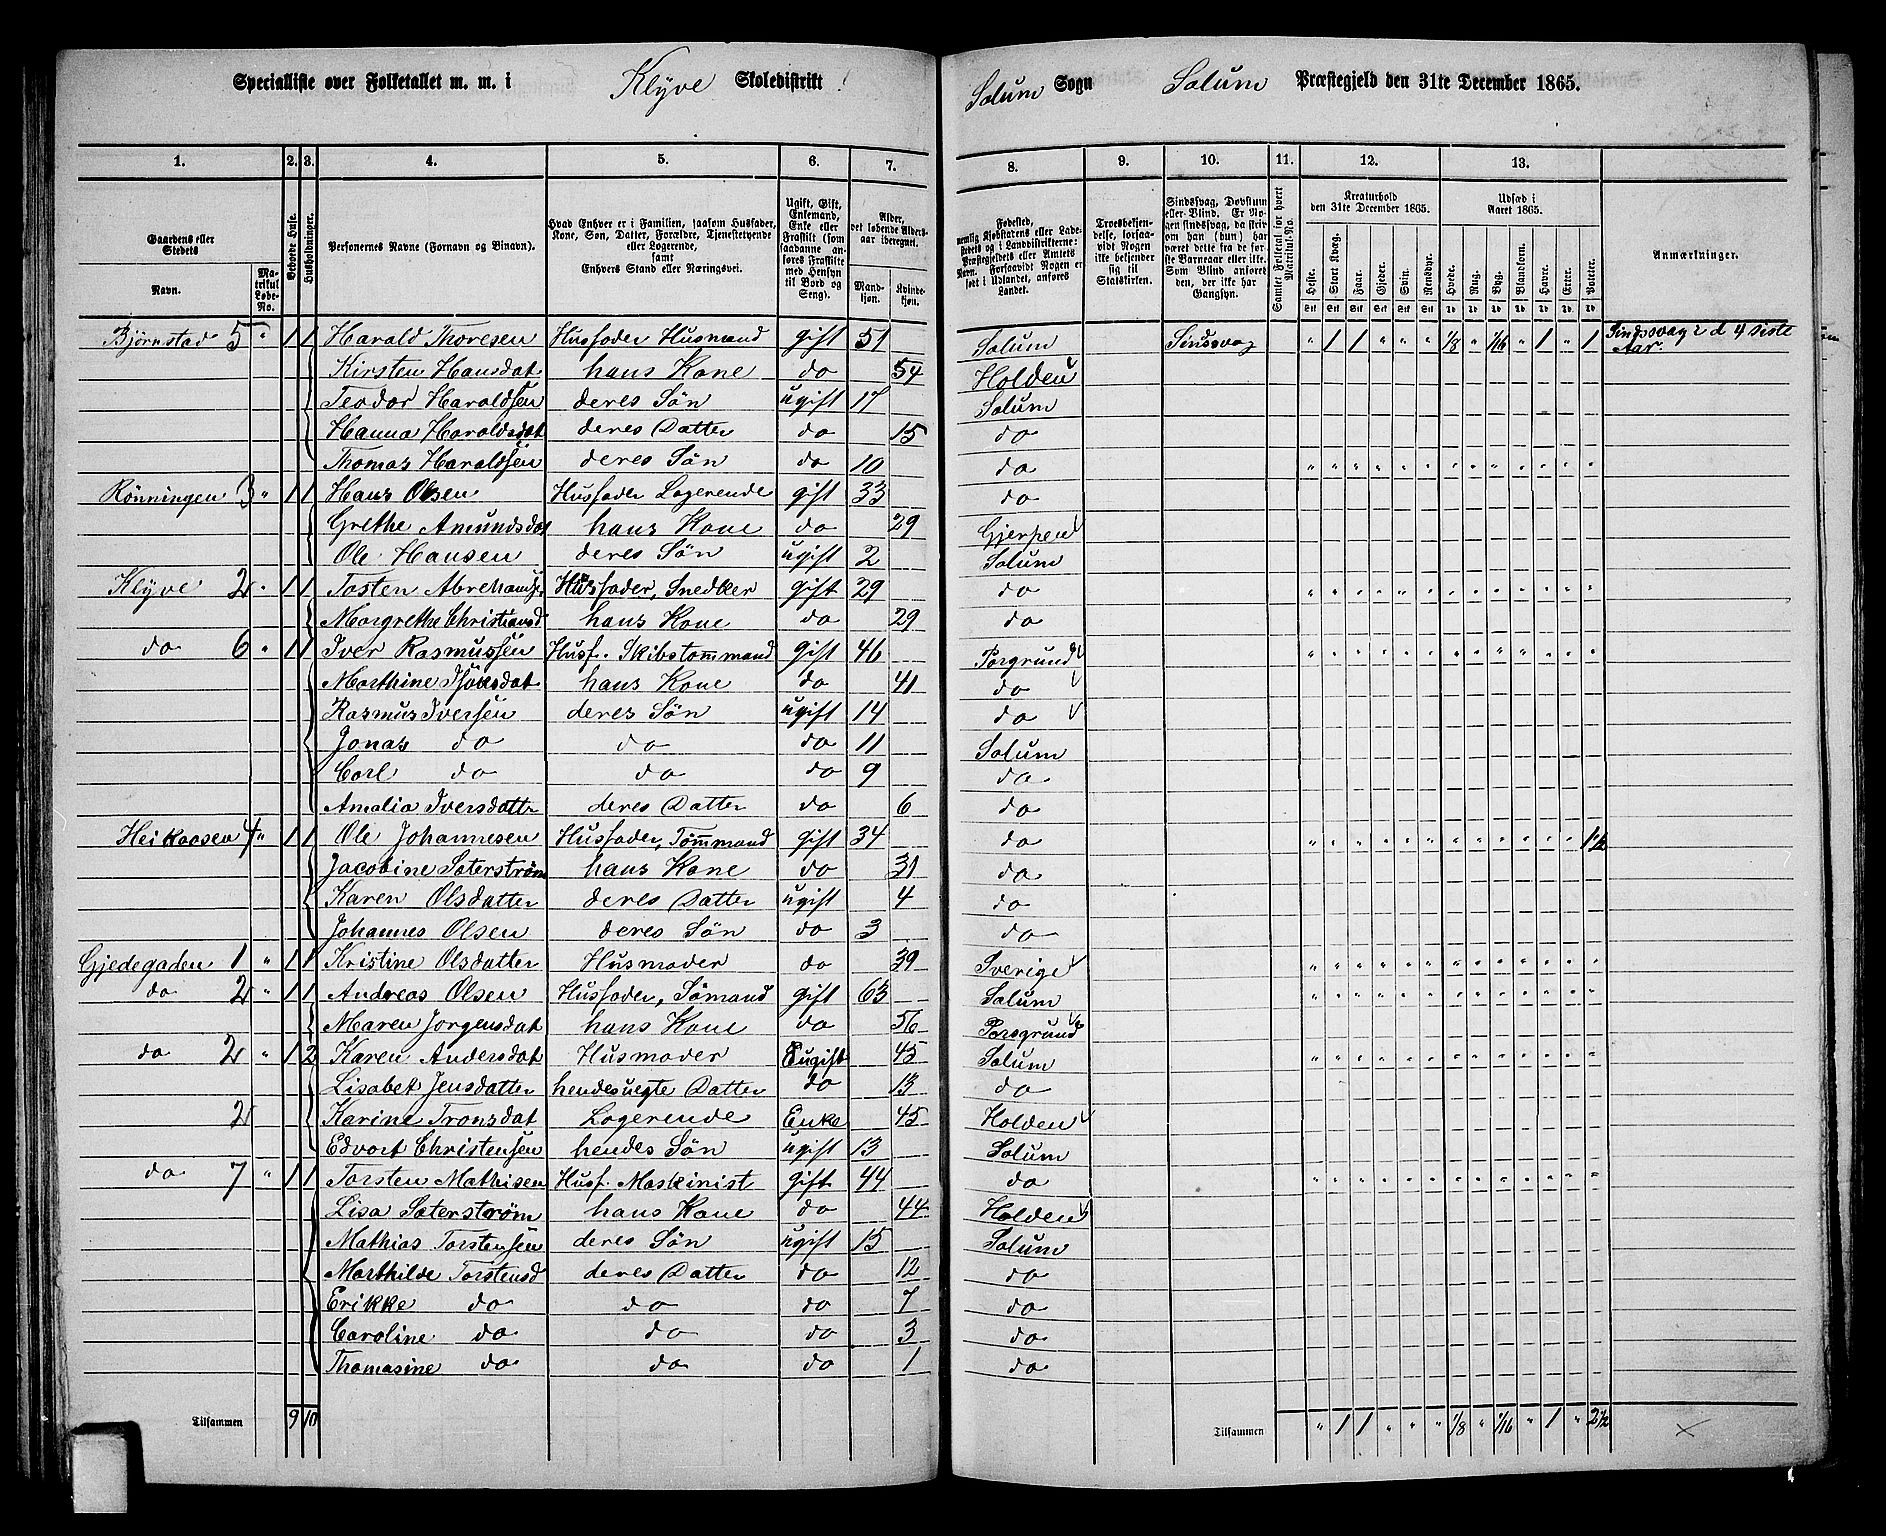 Specialliste over Folketallet m. m. i Klyve Skoledistrikt
Solum Sogn Solum Præstegjeld den 31te December 1865.
1. 2. 3. 4. 5. 6. 7.
8. 9. 10. 11. 12. 13.
Gaardens eller Stedets Navn.
Matrikul Løbe-No.
Beboede Huse.
Husholdninger.
Personernes Navne (Fornavn og Binavn).
Hvad Enhver er i Familien, saasom Husfader, Kone, Søn, Datter, Forældre, Tjenestetyende eller Logerende, samt Enhvers Stand eller Næringsvei.
Ugift, Gift, Enkemand, Enke eller Fraskilt (som saadanne anføres Fraskilte med Hensyn til Bord og Seng).
Alder, det løbende Aldersaar iberegnet.
Mandkjøn. Kvindekjøn.
Fødested, nemlig Kjøbstadens eller Ladestedets og i Landdistrikterne: Præstegjeldets eller Amtets Navn. Forsaavidt Nogen er født i Udlandet, anføres Landet.
Troesbekjendelse, forsaavidt Nogen ikke bekjender sig til Statskirken.
Sindssvag, Døvstum eller Blind. Er Nogen sindssvag, da skriv om han (hun) har været dette fra de første Barneaar eller ikke. Som Blind anføres den, der ikke har Gangsyn.
Samlet Folketal for hvert Matrikul-No.
Kreaturhold den 31te December 1865.
Heste. Stort Kvæg. Faar. Gjeder. Svin. Rensdyr.
Udsæd i Aaret 1865.
Hvede. Rug. Byg. Blandkorn. Havre. Erter. Poteter.
Anmærkninger.
Bjørnstad 5 " 1 1 Harald Thoresen Husfader Husmand gift 51 Solum Sindssvag " 1 1 " " " 1/8 " 1/16 " 1 " 1 Sindssvag i d 4 sidste Aar.
Kirsten Hansdat hans Kone do 54 Holden
Teodor Haraldsen deres Søn ugift 17 Solum
Hanna Haroldsdat deres Datter do 15 do
Thomas Haraldsen deres Søn do 10 do
Rønningen 3 " 1 1 Hans Olsen Husfader Logerende gift 33 do
Grethe Amundsdat hans Kone do 29 Gjerpen
Ole Hansen deres Søn ugift 2 Solum
Klyve 2 " 1 1 Tosten Abrehams. Husfader, Snedker gift 29 do
Margrethe Christiansd hans Kone do 29 do
do 6 " 1 1 Iver Rasmussen Husf. Skibstømmand gift 46 Porgrund
Marthine hans Kone do 41 do
Rasmus Iversen deres Søn ugift 14 do
Jonas do do do 11 Solum
Carl do do do 9 do
Amalia Iversdattr deres Datter do 6 do
Heikaasen 4 " 1 1 Ole Johannesen Husfader, Tømmand gift 34 do 1 1/2
Jacobine Säterstrøm hans Kone do 31 do
Karen Olsdatter deres Datter ugift 4 do
Johannes Olsen deres Søn do 3 do
Gjedegaden 1 " 1 1 Kristine Olsdatter Husmoder do 39 Sverige
do 2 " 1 1 Andreas Olsen Husfader, Sømand gift 63 Solum
Maren Jorgensdat hans Kone do 56 Porsgrund
do 2 " 1 2 Karen Andersdat Husmoder ugift 45 Solum
Lisabet Jensdatter hendes uegte Datter do 13 do
2 Karine Tronsdat Logerende Enke 45 Holden
Edvart Christensen hendes Søn ugift 13 Solum
do 7 " 1 1 Torsten Mathisen Husf. Maskinist gift 44 do
Lisa Säterstrøm hans Kone do 44 Holden
Mathias Torstensen deres Søn ugift 15 Solum
Marthilde Torstensd deres Datter do 12 do
Erikke do do do 7 do
Caroline do do do 3 do
Thomasine do do do 1 do
Tilsammen 9 10
Tilsammen " 1 1 " " " 1/8 " 1/16 " 1 " 2 1/2